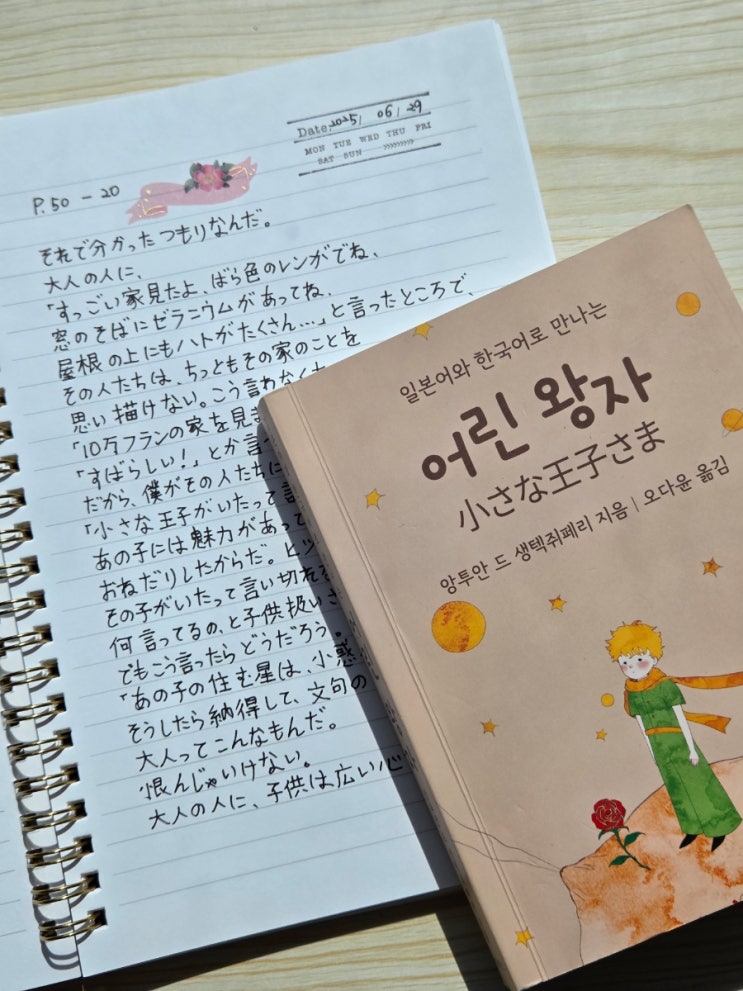 Date. 2025/ 06/ 29
MON TUE WED THU FRI
SAT SUN
P.50 - 20
それで分かったつもりなんだ。
大人の人に、
「すっごい家見たよ、ばら色のレンガでね、
窓のそばにゼラニウムがあってね、
屋根の上にもハトがたくさん…」と言ったところで、
その人たちは、ちっともその家のことを
思い描けない。こう言わなくち
「10万フランの家を見ま
「すばらしい!」とか言
だから、僕がその人たちに
「小さな王子がいたって
あの子には魅力があって
おねだりしたからだ。ヒツ
その子がいたって言い切れる
何言ってるの、と子供扱いさ
でもこう言ったらどうだろう。
「あの子の住む星は、小惑
そうしたら納得して、文句の
大人ってこんなもんだ。
恨んじゃいけない。
大人の人に、子供は広い心
일본어와 한국어로 만나는
어린 왕자
小さな王子さま
앙투안 드 생텍쥐페리 지음 | 오다윤 옮김